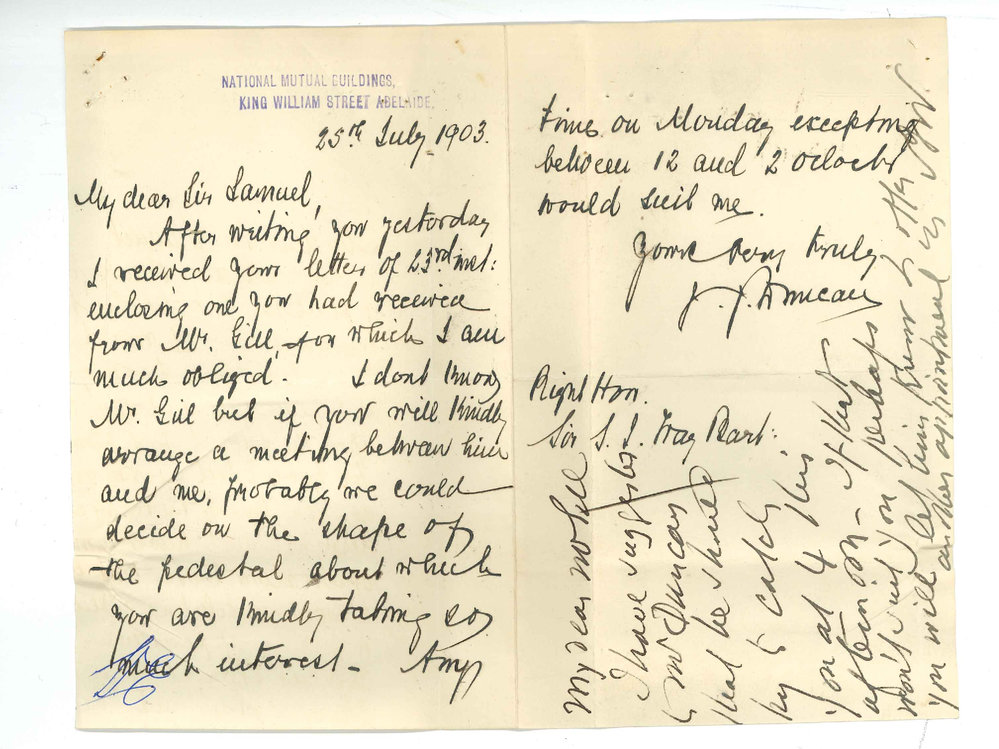 NATIONAL MUTUAL BUILDINGS,
KING WILLIAM STREET ADELAIDE.
25th July 1903.
My dear Sir Samuel,
After writing you yesterday
I received your letters of 23rd inst:
enclosing one you had received
from Mr. Gill, for which I am
much obliged. I dont know
Mr. Gill but if you will kindly
arrange a meeting between him
and me, probably we could
decide on the shape of
the pedestal about which
you are kindly taking so
much interest - Any
time on Monday excepting
between 12 and 2 oclock
would suit me.
Yours very truly
J. J. Duncan
Right Hon.
Sir S. J. Way Bart:
My dear
I have suggested
to Mr Duncan
that he should
try to catch
you at 4 this
afternoon - If that
won't suit you perhaps
you will let him know & offer
another appointment